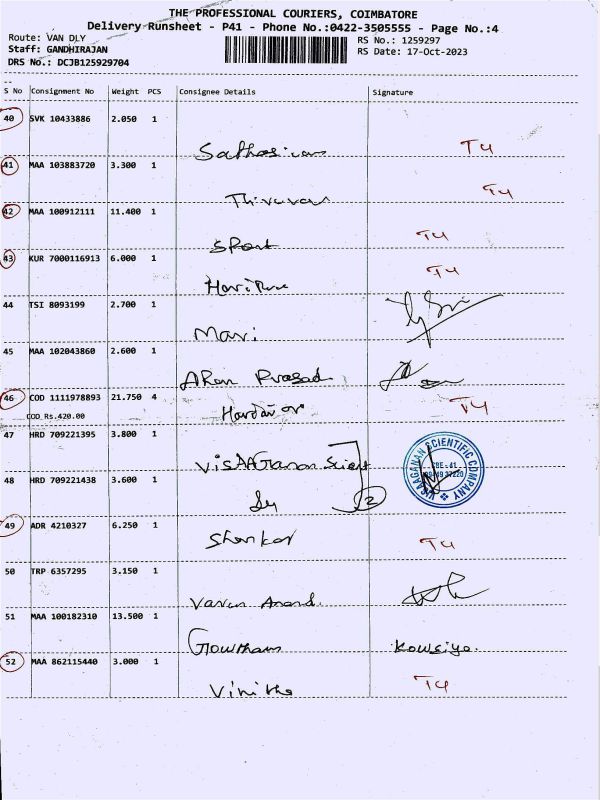 THE PROFESSIONAL COURIERS, COIMBATORE
Delivery Runsheet - P41 - Phone No.:0422-3505555 - Page No.:4
Route: VAN DLY
RS No.: 1259297
Staff: GANDHIRAJAN
RS Date: 17-Oct-2023
DRS No.: DCJB125929704
S No Consignment No Weight PCS Consignee Details Signature
40 SVK 10433886 2.050 1
T4
41 MAA 103883720 3.300 1
T4
42 MAA 100912111 11.400 1
T4
43 KUR 7000116913 6.000 1
T4
44 TSI 8093199 2.700 1
Mari
45 MAA 102043860 2.600 1
Arun Prasad
46 COD 1111978893 21.750 4
COD Rs.420.00
T4
47 HRD 709221395 3.800 1
VISAAGANAN SCIENTIFIC COMPANY
CBE-41
48 HRD 709221438 3.600 1
2
49 ADR 4210327 6.250 1
Shankar T4
50 TRP 6357295 3.150 1
Varun Anand.
51 MAA 100182310 13.500 1
Gowtham Kowsiya.
52 MAA 862115440 3.000 1
Vinitha T4